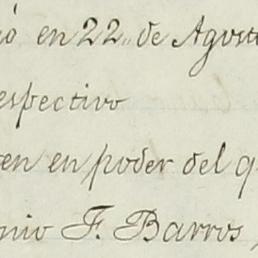 en 22 de Agosto
espectivo
en en poder del q
nio F. Barros